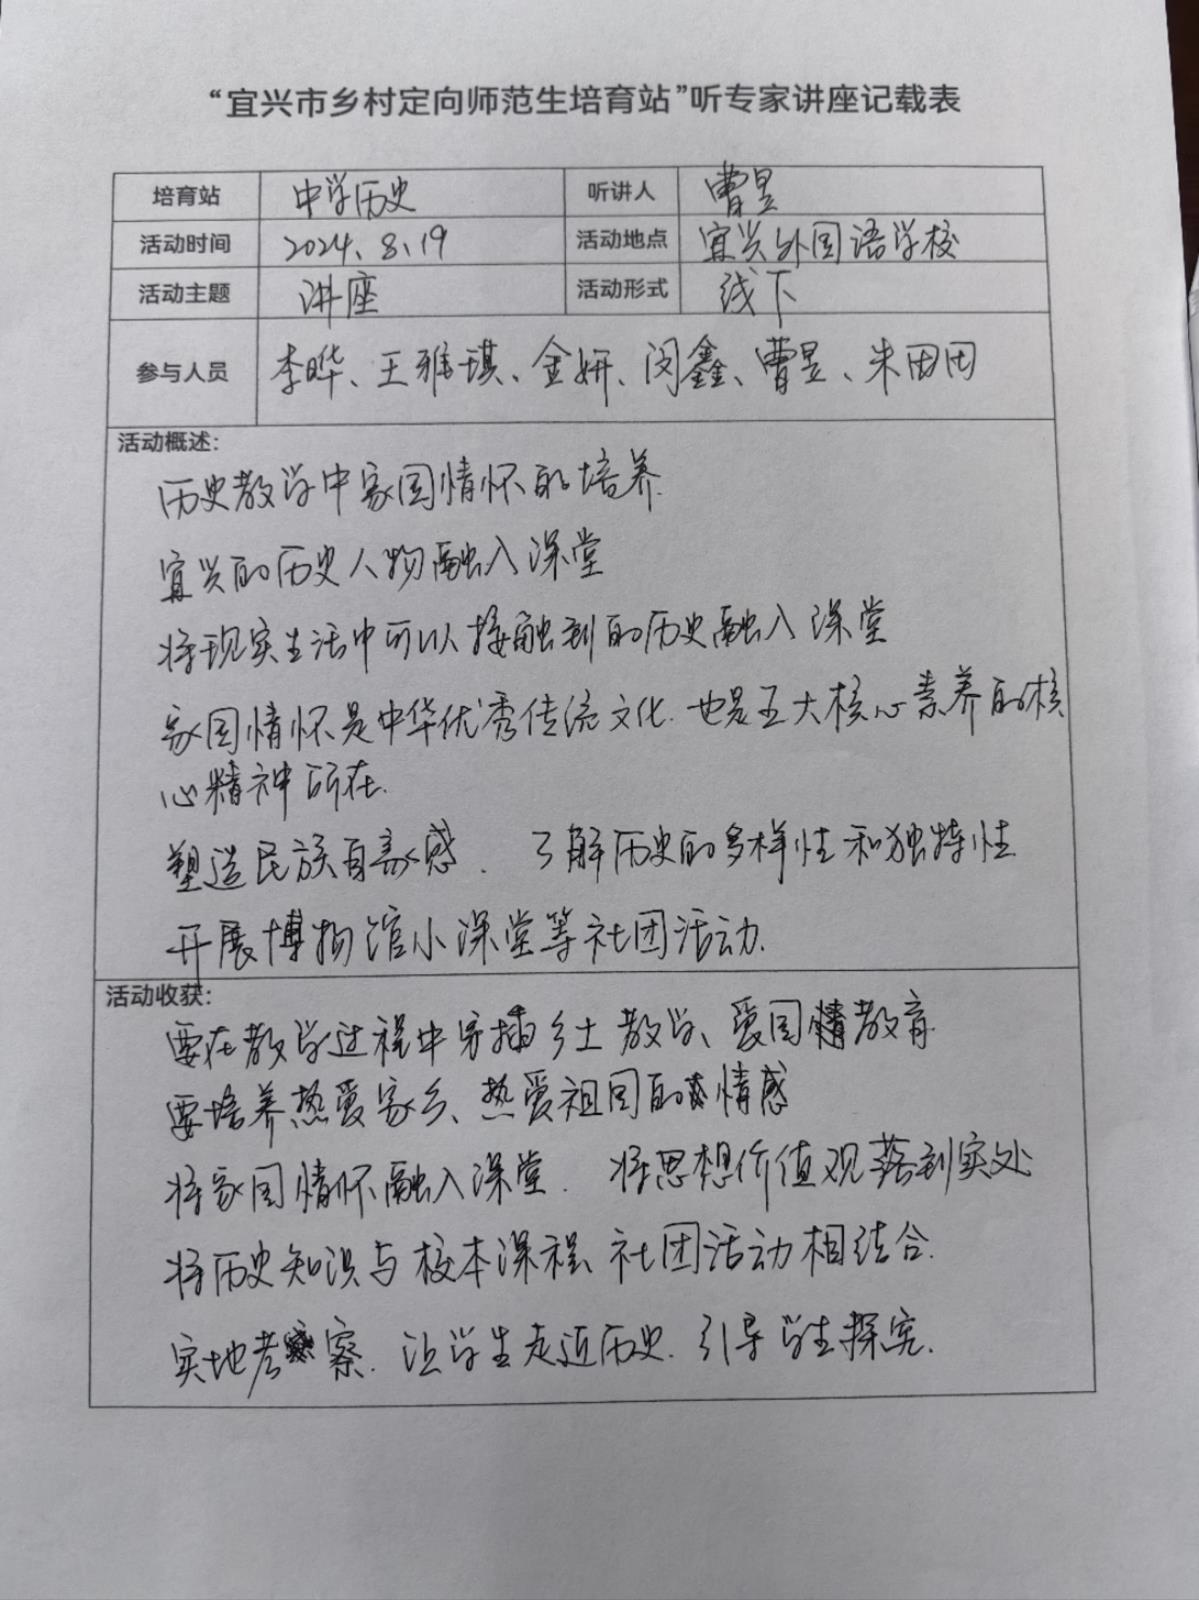 “宜兴市乡村定向师范生培育站”听专家讲座记载表
培育站 中学历史 听讲人 曹昱
活动时间 2024、8、19 活动地点 宜兴外国语学校
活动主题 讲座 活动形式 线下
参与人员 李晔、王雅琪、金妍、闵鑫、曹昱、朱田田
活动概述：
历史教学中家国情怀的培养.
宜兴的历史人物融入课堂
将现实生活中可以接触到的历史融入课堂
家国情怀是中华优秀传统文化.也是五大核心素养的核
心精神所在.
塑造民族自豪感.了解历史的多样性和独特性
开展博物馆小课堂等社团活动.
活动收获：
要在教学过程中穿插乡土教学、爱国情教育.
要培养热爱家乡、热爱祖国的情感
将家国情怀融入课堂.将思想价值观落到实处
将历史知识与校本课程、社团活动相结合.
实地考察.让学生走近历史.引导学生探究.